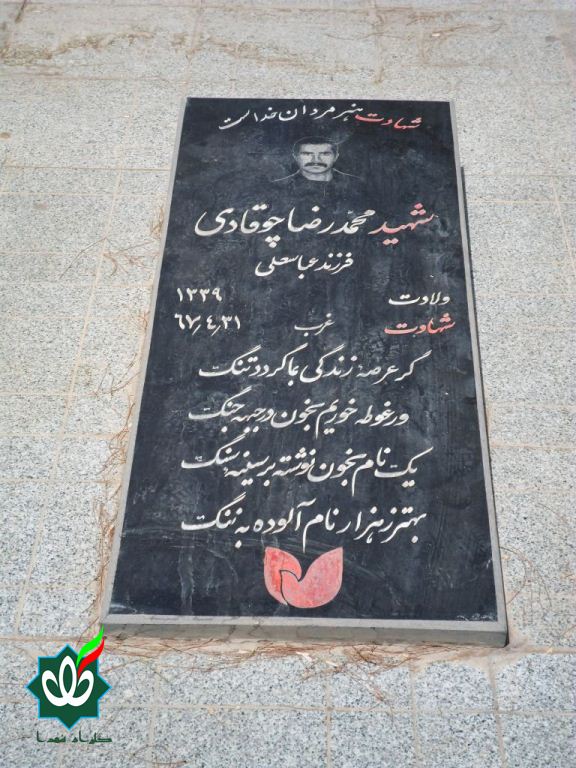 شهادت هنر مردان خداست
شهید محمدرضا چوقادی
فرزند عباسعلی
ولادت ۱۳۳۹
شهادت غرب ۶۷/۴/۳۱
گر عرصه زندگی بما گردد تنگ
ور غوطه خوریم بخون در جبهه جنگ
یک نام بخون نوشته بر سینه سنگ
بهتر ز هزار نام آلوده به ننگ
گلزار شهدا